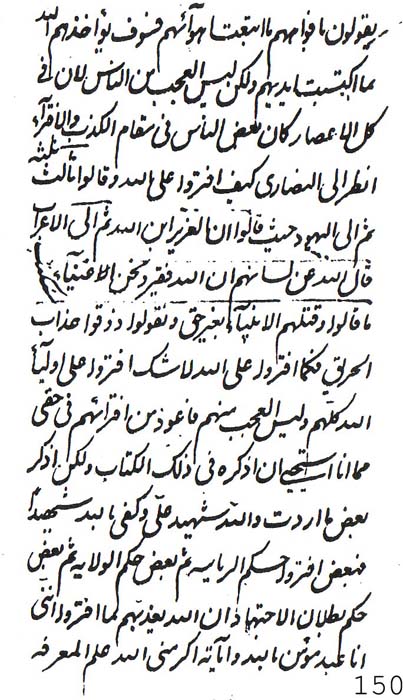 ويقولون بافواههم ما اتبعت اهوائهم فسوف يؤاخذهم الله
بما اكتسبت ايديهم ولكن ليس العجب من الناس لان في
كل الاعصار كان بعض الناس في مقام الكذب والافتراء
انظر الى النصارى كيف افتروا على الله وقالوا ثالث ثلثة
ثم الى اليهود حيث قالوا ان العزير ابن الله ثم الى الاعراب
قال الله عن لسانهم ان الله فقير ونحن الاغنياء
ما قالوا وقتلهم الانبياء بغير حق ونقولوا ذوقوا عذاب
الحريق فكما افتروا على الله لا شك افتروا على اولياء
الله كلهم وليس العجب منهم فاعوذ من افترائهم في حقي
مما انا استحيي ان اذكره في ذلك الكتاب ولكن اذكر
بعض ما اردت والله شهيد علي وكفى بالله شهيدا
فبعض افتروا حكم الربابية ثم بعض حكم الولاية ثم بعض
حكم بطلان الاجتهاد ان الله يعذبهم لما افتروا انني
انا عبد مؤمن بالله وآياته اكرمني الله علم المعرفة
150